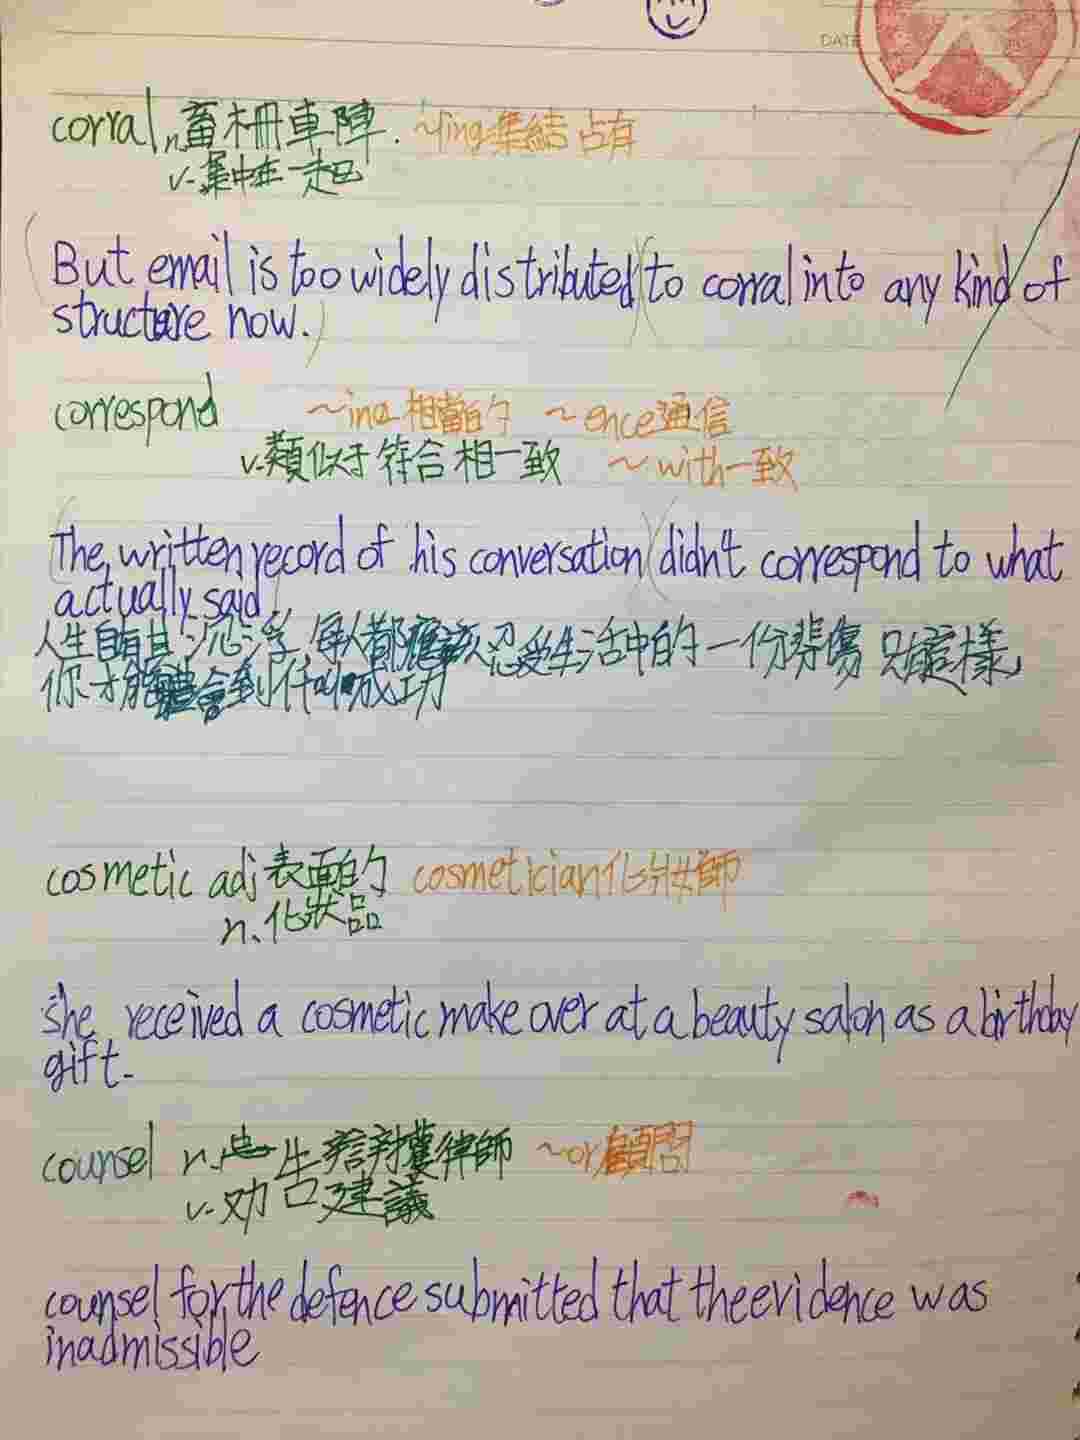 DATE
corral n.畜柵車陣. ~ing集結 占有
v.集中在一起
But email is too widely distributed to corral into any kind of
structure now.
correspond ~ing 相當的 ~ence通信
v.類似于 符合 相一致 ~with一致
The written record of his conversation didn't correspond to what
actually said
人生自有其沉浮 每人都應該忍受生活中的一份悲傷 只有這樣,
你才能體會到什叫成功
cosmetic adj 表面的 cosmetician化妝師
n.化狀品
she received a cosmetic make over at a beauty salon as a birthday
gift.
counsel n. 律師 ~or顧問
v.劝告建議
counsel for the defence submitted that the evidence was
inadmissible